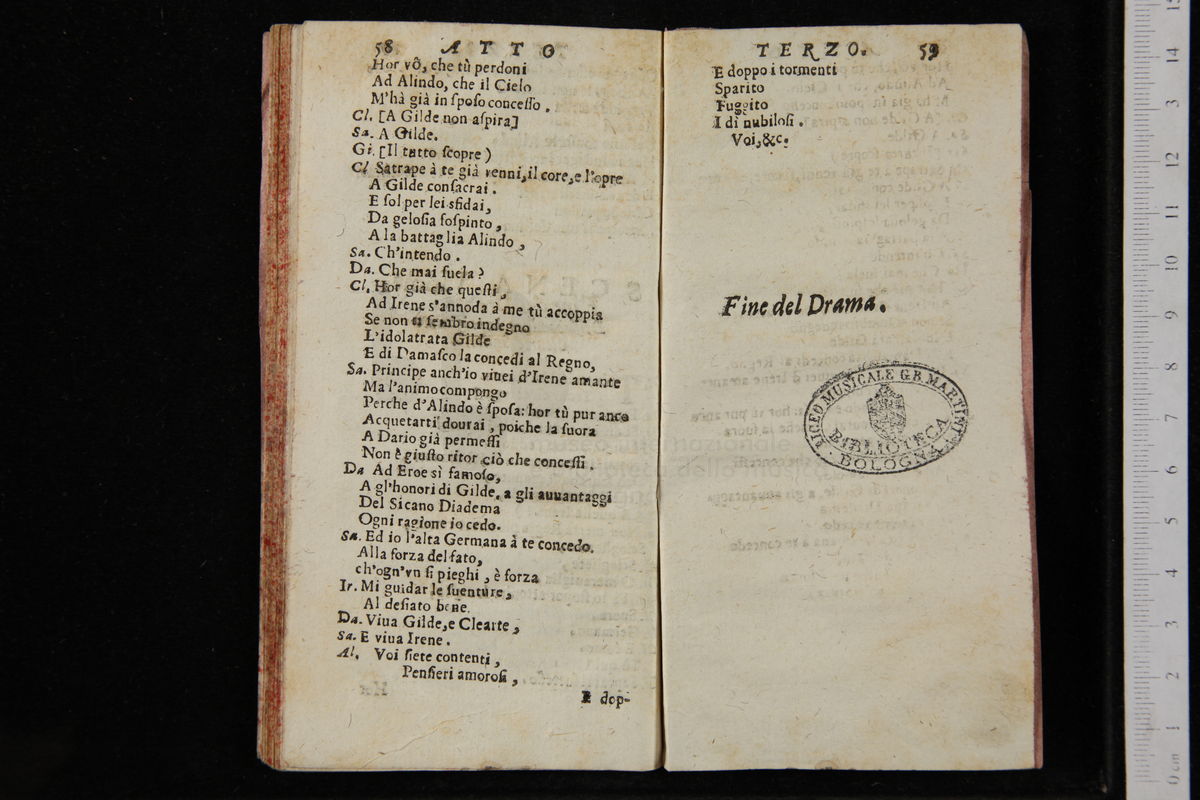 58 ATTO
Hor vô, che tù perdoni
Ad Alindo, che il Cielo
M'hà già in ſpoſo conceſſo.
Cl. [A Gilde non aſpira]
Sa. A Gilde.
Gi. [Il tutto ſcopre)
Cl Satrape à te già venni, il core, e l'opre
A Gilde conſacrai.
E ſol per lei sfidai,
Da geloſia ſoſpinto,
A la battaglia Alindo,
Sa. Ch'intendo.
Da. Che mai ſuela?
Cl. Hor già che queſti,
Ad Irene s'annoda à me tù accoppia
Se non ti ſembro indegno
L'idolatrata Gilde
E di Damaſco la concedi al Regno,
Sa. Principe anch'io viuei d'Irene amante
Ma l'animo compongo
Perche d'Alindo è ſpoſa: hor tù pur anco
Acquetarti dourai, poiche la ſuora
A Dario già permeſſi
Non è giuſto ritor ciò che conceſſi.
Da Ad Eroe sì famoſo,
A gl'honori di Gilde, a gli auuantaggi
Del Sicano Diadema
Ogni ragione io cedo.
Sa. Ed io l'alta Germana à te concedo.
Alla forza del fato,
ch'ogn'vn ſi pieghi, è forza
Ir. Mi guidar le ſuenture,
Al deſiato bene.
Da. Viua Gilde, e Clearte,
Sa. E viua Irene.
Al. Voi ſiete contenti,
Penſieri amoroſi,
E dop-
TERZO. 59
E doppo i tormenti
Sparito
Fuggito
I dì nubiloſi.
Voi, &c.
Fine del Drama.
LICEO MUSICALE G.B. MARTINI
BIBLIOTECA
BOLOGNA